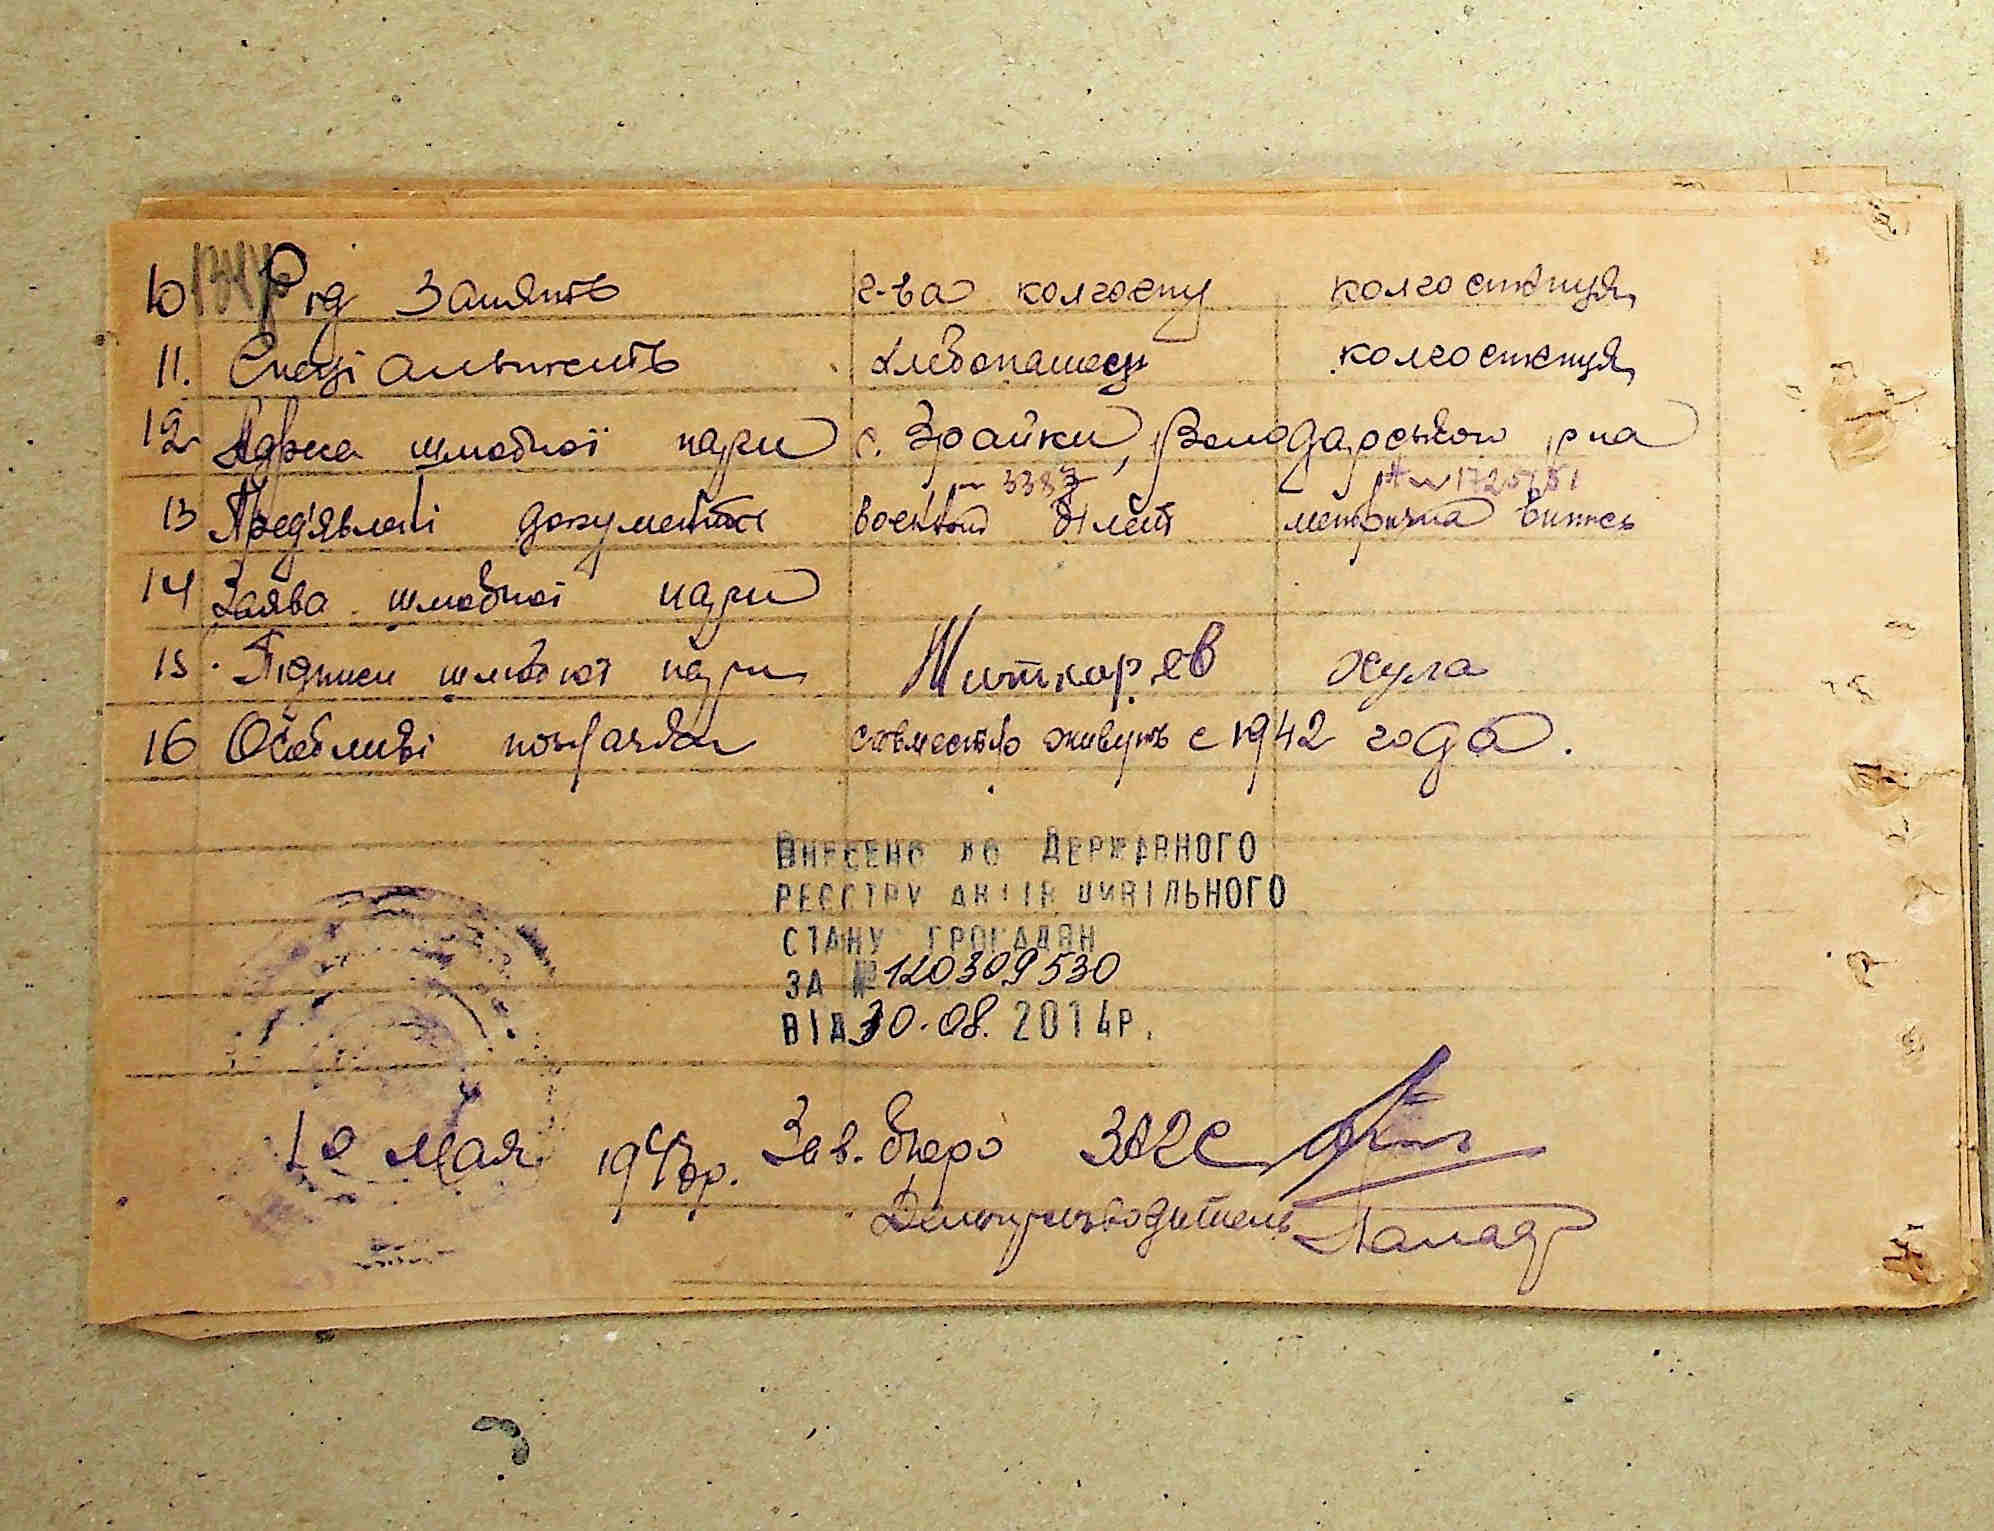 10 Рід Занять г-ва колгоспу колгоспниця
11. Спеціальність хлебопашец колгоспниця
12 Адреса шлюбної пари с. Зрайки, Володарського р-на
3383 1725151
13 Пред'явлені документи военний білет метрична випись
14 Заява шлюбної пари
15. Підписи шлюбної пари Житкарєв
16 Особливі позначки совместно живуть с 1942 года.
ВНЕСЕНО ДО ДЕРЖАВНОГО
РЕЄСТРУ АКТІВ ЦИВІЛЬНОГО
СТАНУ ГРОМАДЯН
ЗА № 120309530
ВІД 30.08. 2014р.
10 мая 194 р. Зав. бюро ЗАГС
Делопроизводитель